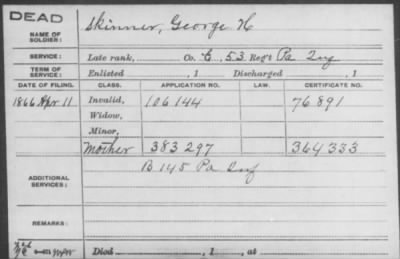 DEAD
NAME OF SOLDIER: Skinner, George H
SERVICE: Late rank, Co. E, 53 Reg't Pa Inf
TERM OF SERVICE: Enlisted , 1 Discharged , 1
DATE OF FILING. CLASS. APPLICATION NO. LAW. CERTIFICATE NO.
1866 Apr 11 Invalid, 106144 76891
Widow,
Minor,
Mother 383297 364333
ADDITIONAL SERVICES: B 145 Pa Inf
REMARKS:
Died , 1 , at